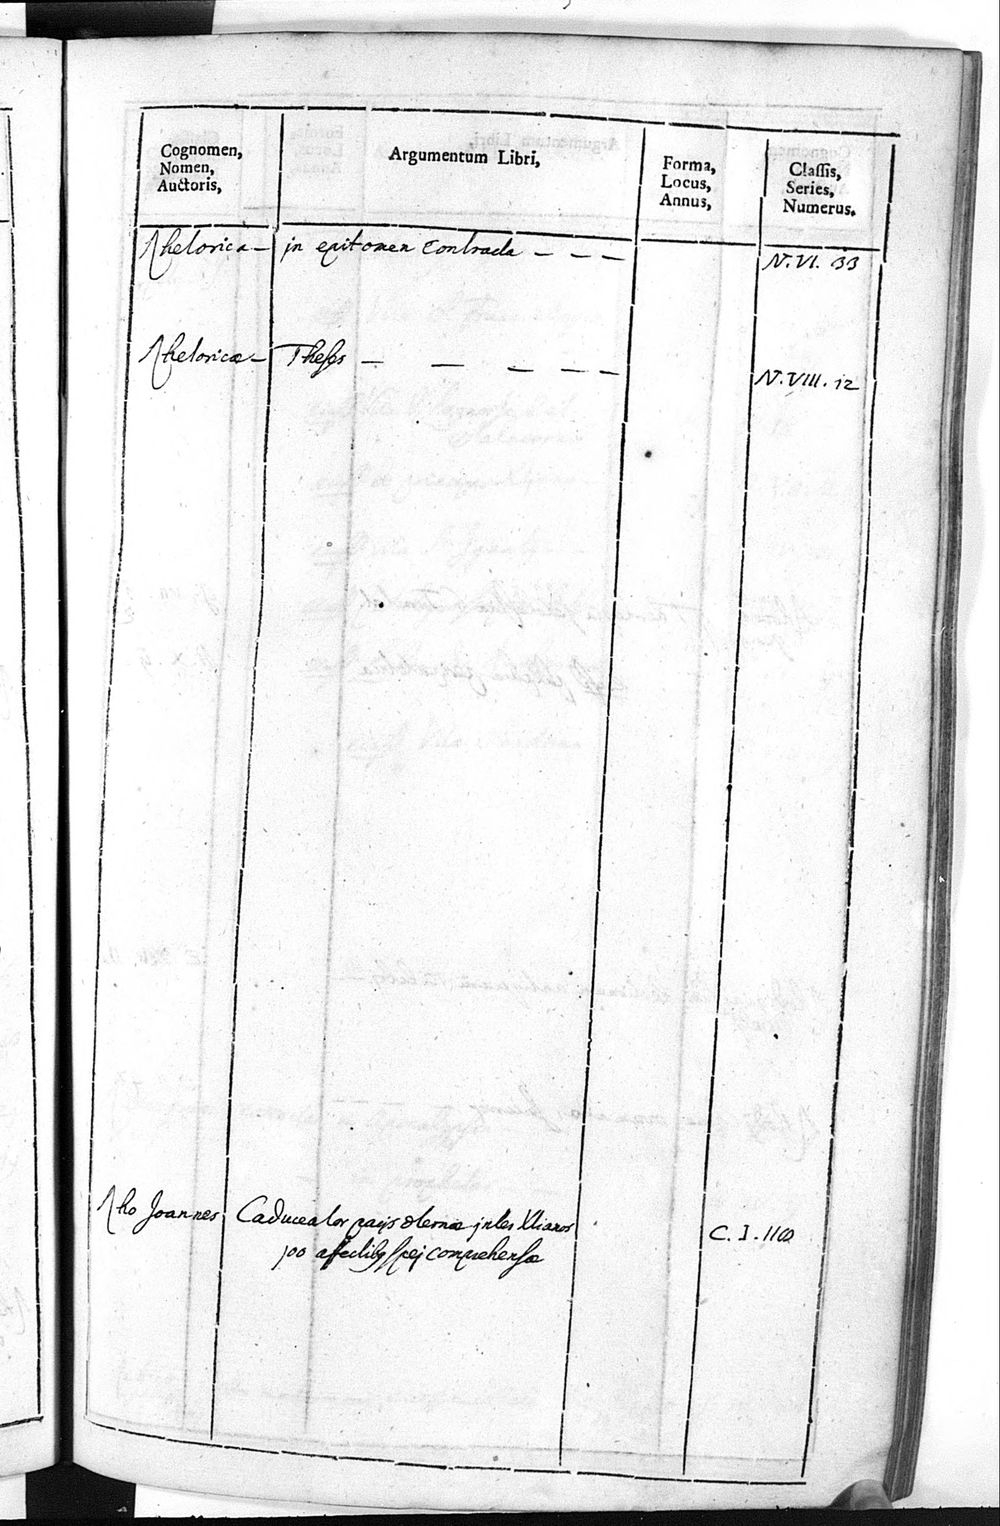 Cognomen,
Nomen,
Auctoris,
Argumentum Libri,
Forma,
Locus,
Annus,
Classis,
Series,
Numerus.
Rhetorica — in epitomen Contracta — — — N. VI. 33
Rhetoricæ — Theses — — — — — N. VIII. 12
Rho Joannes Caduceator pacis æternæ inter Xtianos C. I.
100 affectibus spei comprehensæ